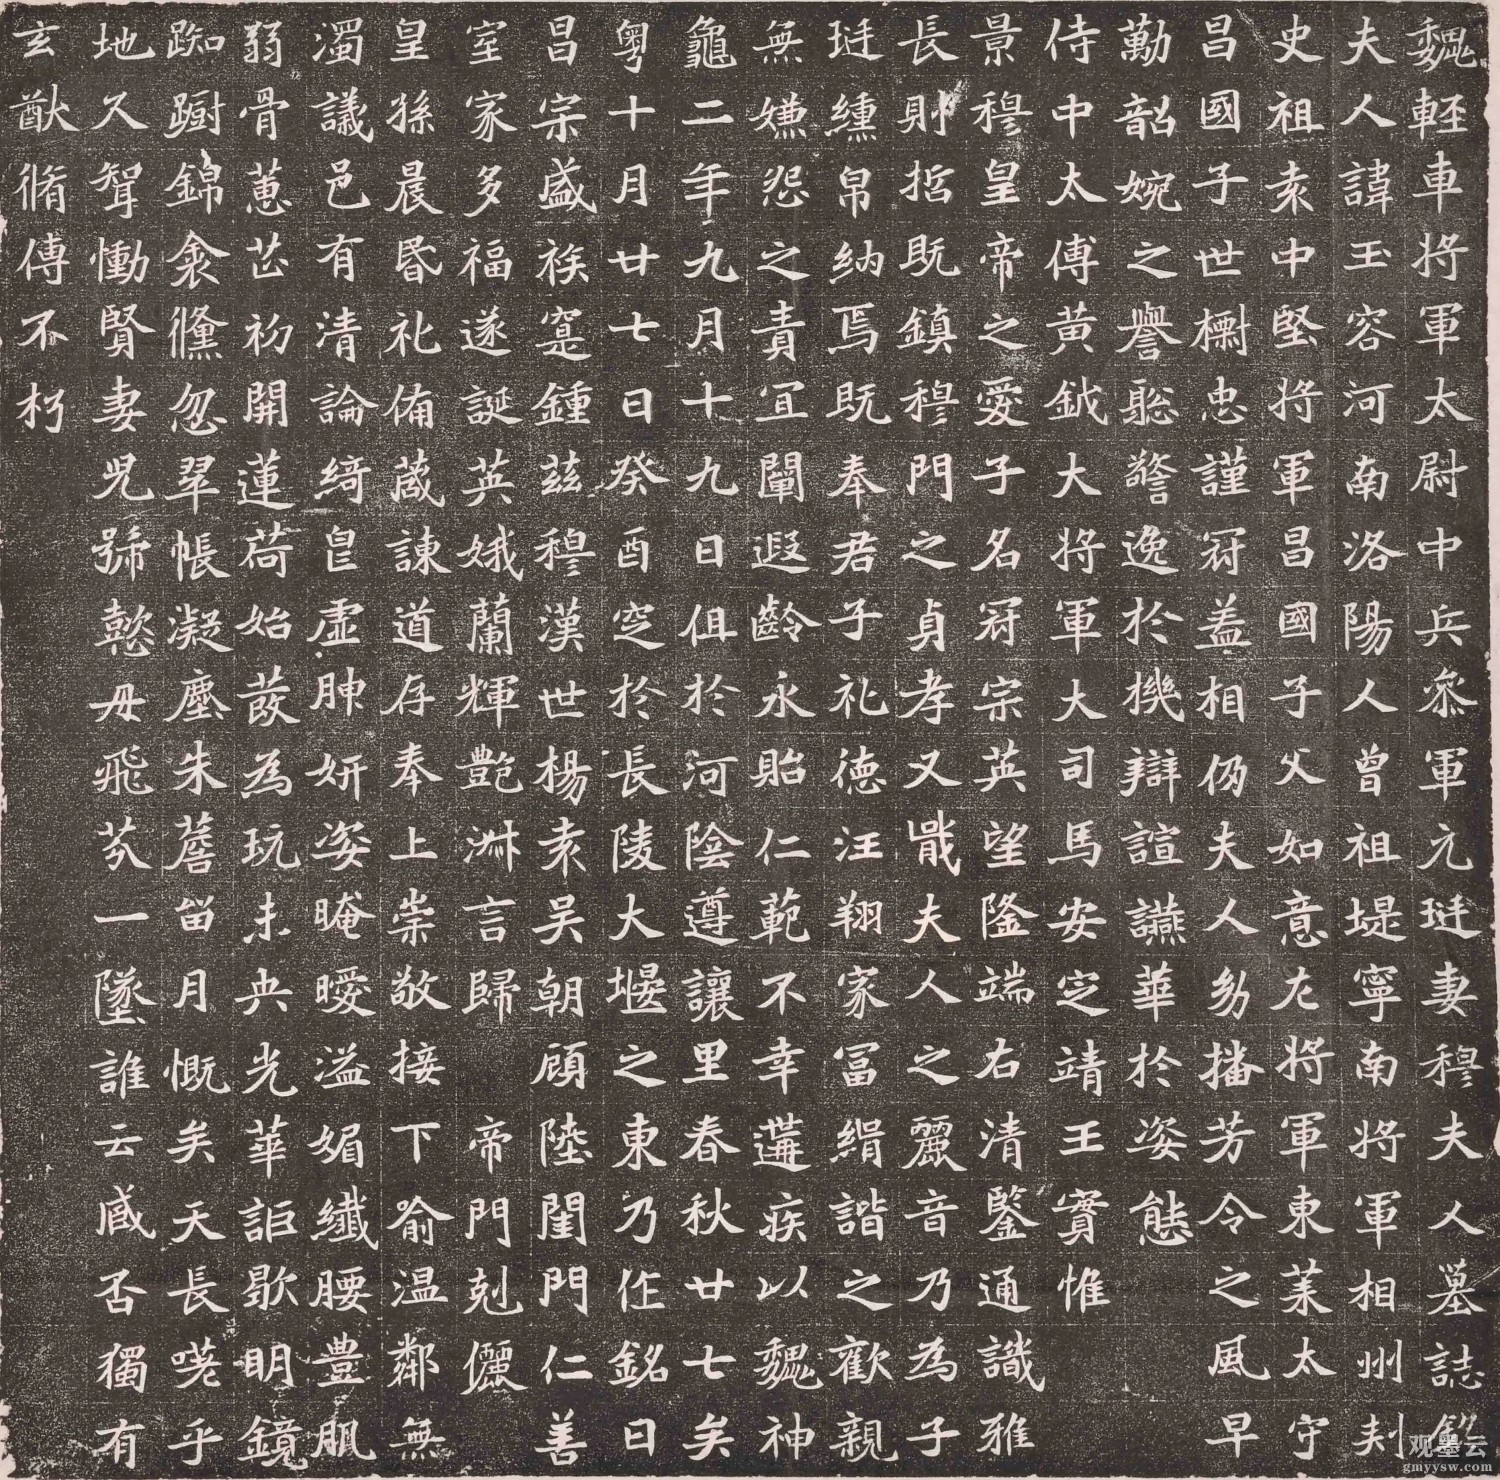 魏輕車將軍太尉中兵叅軍元珽妻穆夫人墓誌銘
夫人諱玉容河南洛陽人曾祖堤寧南將軍相州刾
史祖袁中堅將軍昌國子父如意左將軍東萊太守
昌國子世樹忠謹冠盖相仍夫人幼播芳令之風早
勤韶婉之譽聡警逸於機辯諠讌華於姿態
侍中太傅黄鉞大將軍大司馬安定靖王實惟
景穆皇帝之愛子名冠宗英望隆端右清鑒通識雅
長則哲既鎮穆門之貞孝又戢夫人之麗音乃為子
珽纁帛納焉既奉君子礼德汪翔家冨緝諧之歡親
無嫌怨之責宜闡遐齡永貽仁範不幸遘疾以魏神
龜二年九月十九日伹於河陰遵讓里春秋廿七矣
粤十月廿七日癸酉窆於長陵大堰之東乃作銘曰
昌宗盛族寔鍾茲穆漢世楊袁吴朝顧陸閨門仁善
室家多福遂誕英娥蘭輝艶淋言歸 帝門剋儷
皇孫晨昏礼俻葴諌道存奉上崇敬接下喻温鄰無
濁議邑有清論綺皃虚胂妍姿晻曖溢媚纖腰豊肌
弱骨蕙芷初開蓮荷始莈為玩未央光華詎歇明鏡
踟蹰錦衾儵忽翠帳凝塵朱簷留月慨矣天長嗟乎
地久聟慟賢妻児號懿毋飛芬一墜誰云臧否獨有
玄猷脩傳不朽
观墨云
gmyysw.com